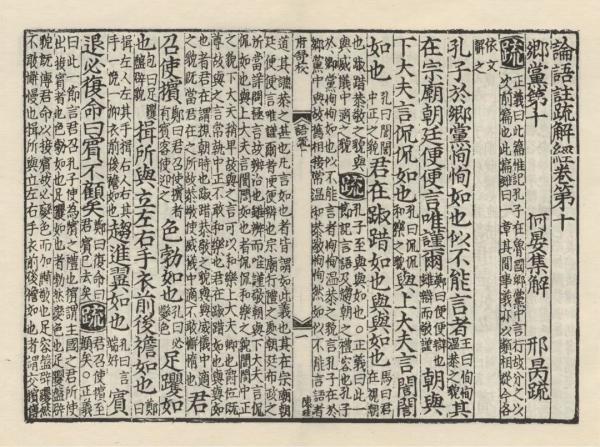 論語註疏解經卷第十
鄉黨第十　何晏集解　邢昺疏
疏　正義曰此篇惟記孔子在魯國鄉黨中言行故分之以
次前篇也此篇雖曰一章其間事義亦以類相從今各
依文解之
孔子於鄉黨恂恂如也似不能言者王曰恂恂溫恭之貌其
在宗廟朝廷便便言唯謹爾鄭曰便便辯也雖辯而敬謹朝與
下大夫言侃侃如也孔曰侃侃和樂之貌與上大夫言誾誾
如也孔曰誾誾中正之貌君在踧踖如也與與如也馬曰君在視朝
也踧踖恭敬之貌與與威儀中適之貌疏孔子至與與如也○正義曰此一節記言語及趨朝之禮容也孔子
於鄉黨恂恂如也似不能言者恂恂溫恭之貌言孔子在於
鄉黨中與故舊相接常溫和恭敬恂恂然如似不能言語者
府學校　語卷十　一
道其謙恭之甚也凡言如也者皆謂如此義也其在宗廟朝
廷便便言唯謹爾者便便辯也宗廟行禮之處朝廷布政之
所當詳問極言故辯治也雖辯而唯謹敬朝與下大夫言侃
侃如也與上大夫言誾誾如也者侃侃和樂之貌誾誾中正
之貌下大夫稍卑故與之言可以和樂上大夫卿也爵位既
尊故與之言常執中正不敢和樂也君在踧踖如也與與如
也者君在謂視朝時也踧踖恭敬之貌與與威儀中適
之貌既當君在之所故恭敬使威儀中適不敢懈惰也君
召使擯鄭曰君召使擯者有賓客使迎之色勃如也孔曰必變色足躩如
也包曰足躩盤辟貌揖所與立左右手衣前後襜如也鄭曰
揖左人左其手揖右人右其手一俛一仰衣前後襜如也趨進翼如也孔曰言端好賓
退必復命曰賓不顧矣鄭曰復命白君賓已去矣疏君召使擯至顧矣○正義
曰此一節言君召孔子使為擯之禮也擯謂主國之君所使
出接賓者也色勃如也足躩如也者勃然變色也足躩盤辟
貌既傳君命以接賓故必變色而加肅敬也足容盤辟躩然
不敢懈慢也揖所與立左右手衣前後襜如也者謂交擯傳